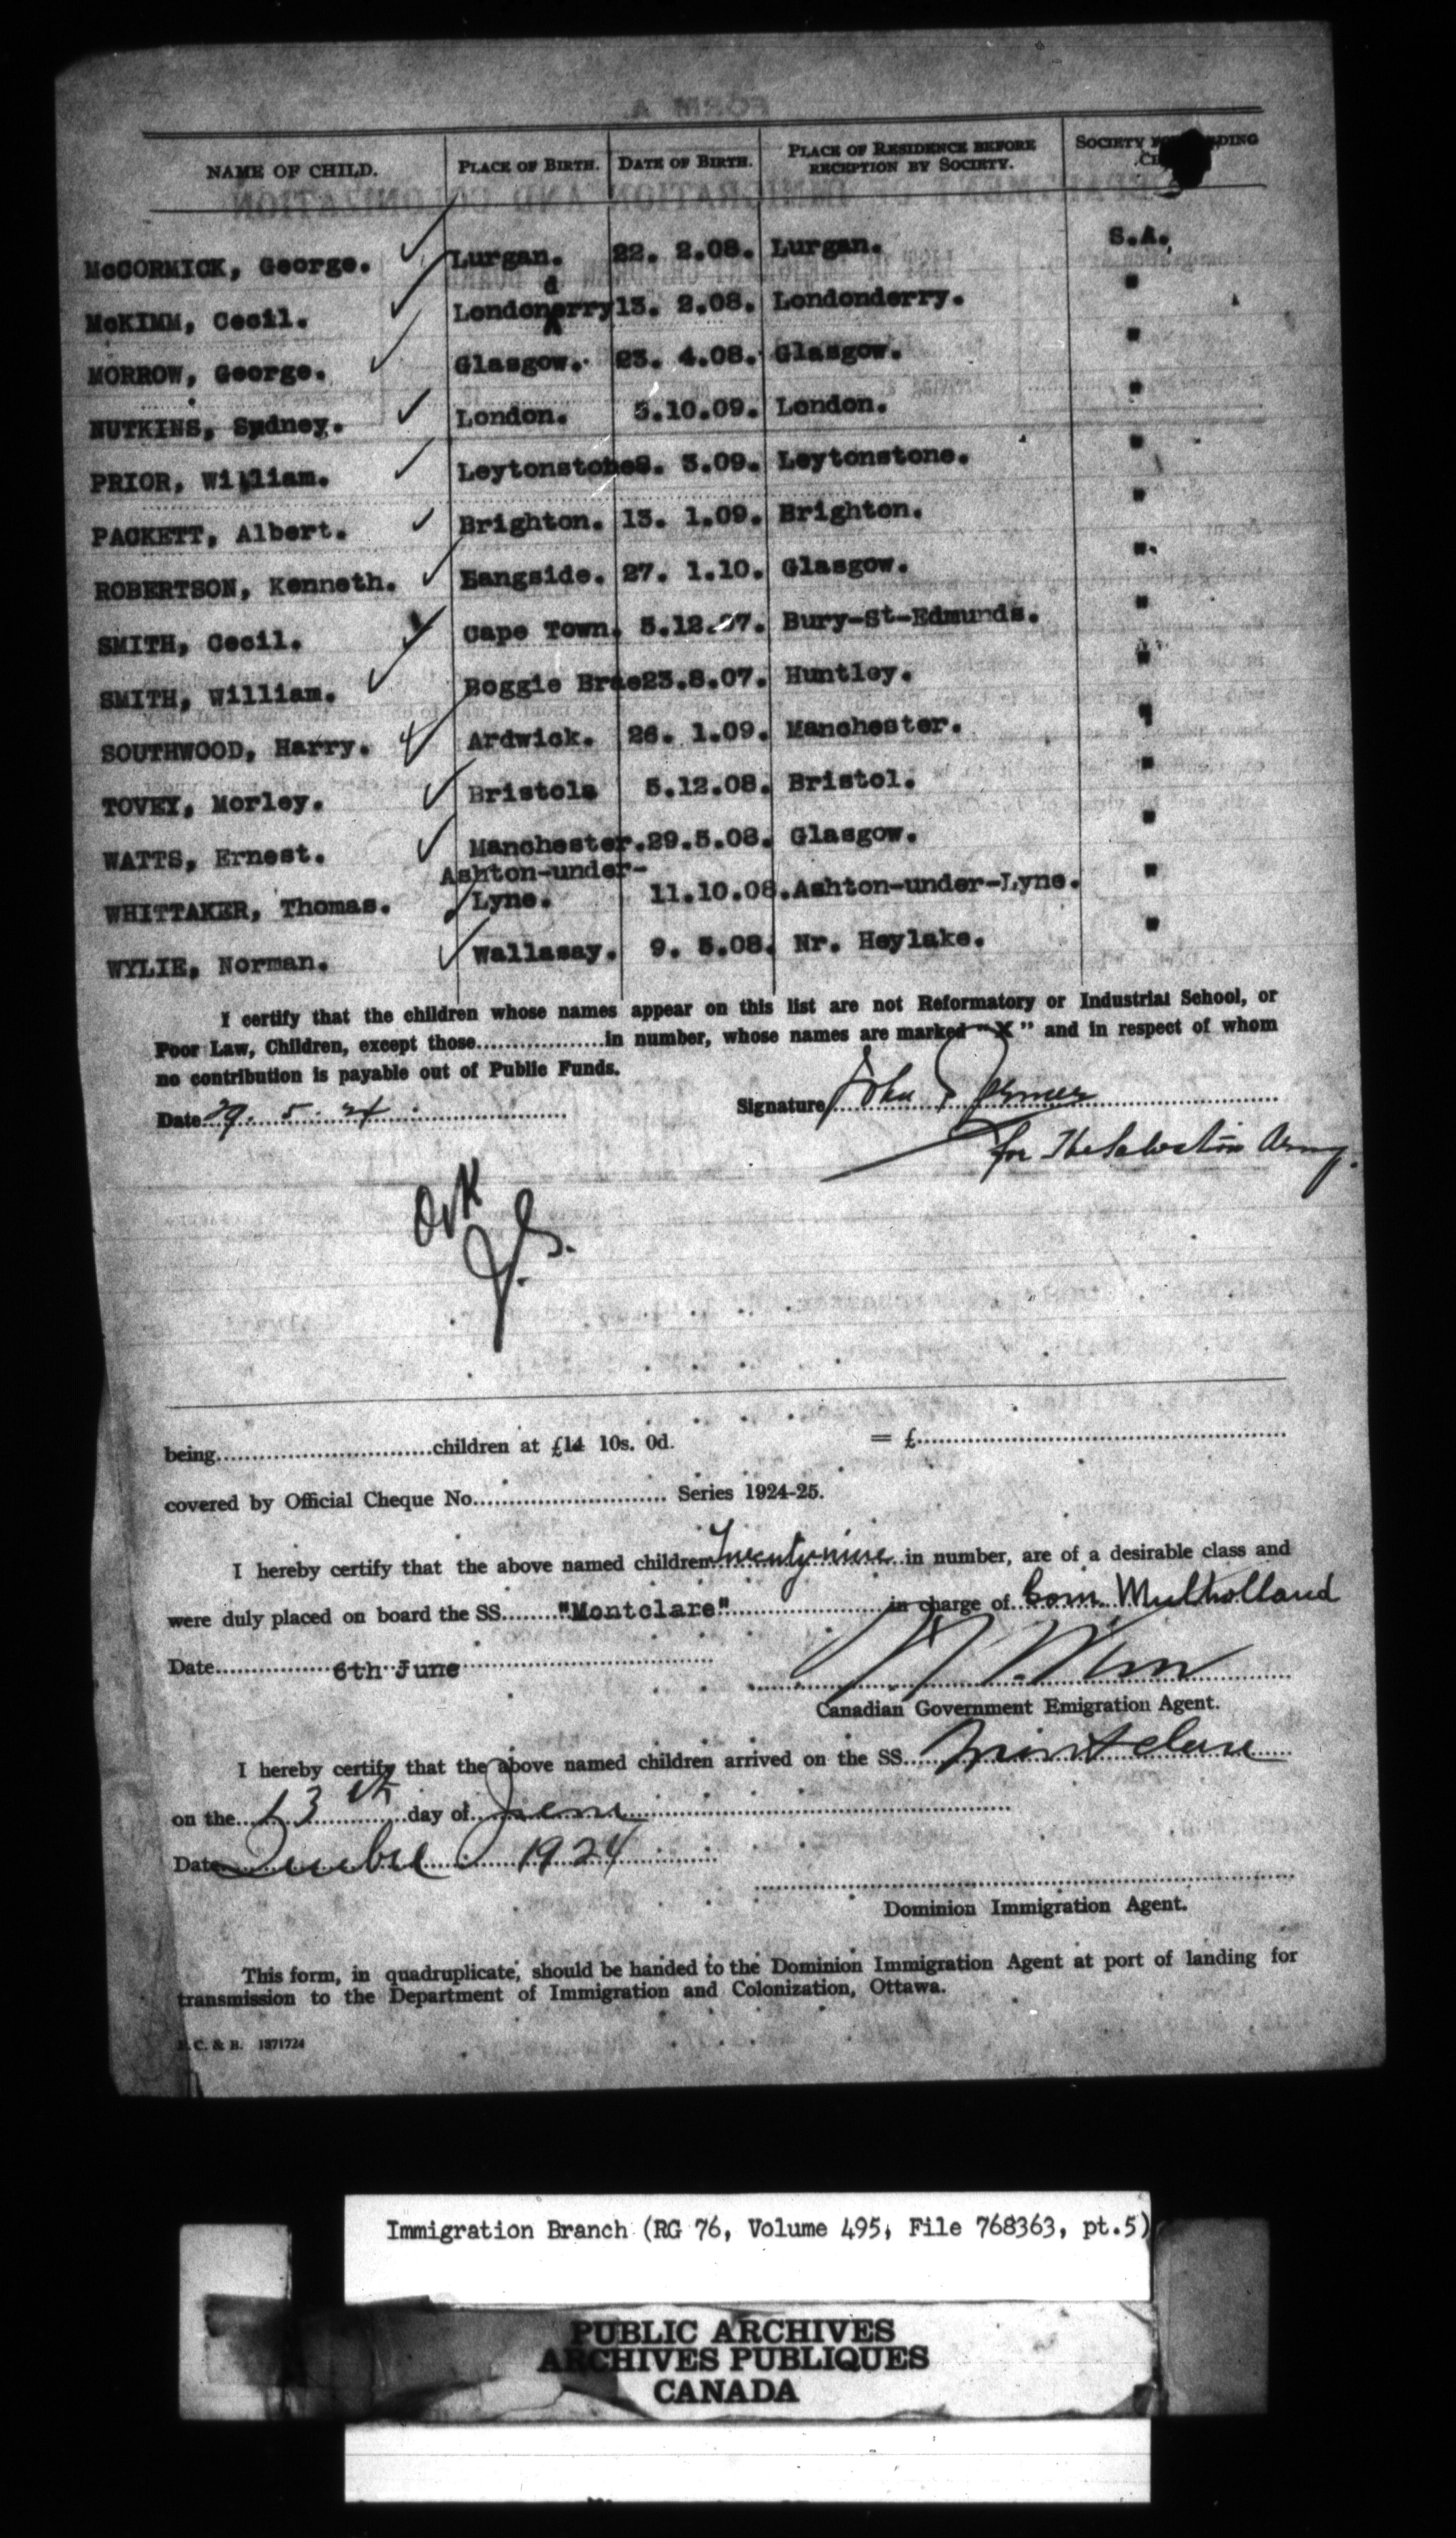 NAME OF CHILD. PLACE OF BIRTH. DATE OF BIRTH. PLACE OF RESIDENCE BEFORE RECEPTION BY SOCIETY. SOCIETY
McCORMICK, George. Lurgan. 22. 2.08. Lurgan. S.A.
McKIMM, Cecil. Londonderry 13. 2.08. Londonderry. "
MORROW, George. Glasgow. 23. 4.08. Glasgow. "
NUTKINS, Sydney. London. 3.10.09. London. "
PRIOR, William. Leytonstone 8. 3.09. Leytonstone. "
PACKETT, Albert. Brighton. 13. 1.09. Brighton. "
ROBERTSON, Kenneth. 27. 1.10. Glasgow. "
SMITH, Cecil. Cape Town. 5.12.07. Bury-St-Edmunds. "
SMITH, William. Boggie Brae 23.8.07. Huntley. "
SOUTHWOOD, Harry. Ardwick. 26. 1.09. Manchester. "
TOVEY, Morley. Bristol. 5.12.08. Bristol. "
WATTS, Ernest. Manchester. 29.5.08. Glasgow. "
WHITTAKER, Thomas. Ashton-under-Lyne. 11.10.08. Ashton-under-Lyne. "
WYLIE, Norman. Wallasay. 9. 5.08. Nr. Hoylake. "
I certify that the children whose names appear on this list are not Reformatory or Industrial School, or
Poor Law, Children, except those..................in number, whose names are marked "X" and in respect of whom
no contribution is payable out of Public Funds.
Date 29. 5. 24 Signature John
for The Salvation Army.
O.K
J.S.
being..............................children at £14 10s. 0d. = £
covered by Official Cheque No............................ Series 1924-25.
I hereby certify that the above named children Twenty nine in number, are of a desirable class and
were duly placed on board the SS. "Montclare" in charge of Com. Mulholland
Date 6th June
Canadian Government Emigration Agent.
I hereby certify that the above named children arrived on the SS. Montclare
on the 13th day of June
Date Quebec 1924
Dominion Immigration Agent.
This form, in quadruplicate, should be handed to the Dominion Immigration Agent at port of landing for
transmission to the Department of Immigration and Colonization, Ottawa.
C. & B. 1371724
Immigration Branch (RG 76, Volume 495, File 768363, pt.5)
PUBLIC ARCHIVES
ARCHIVES PUBLIQUES
CANADA